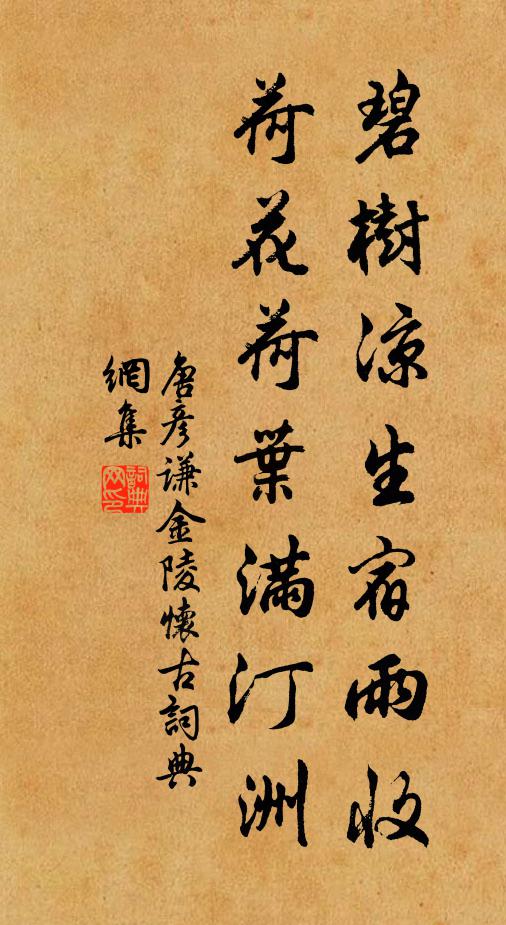 碧樹涼生宿雨收
荷花荷葉滿汀洲
唐彥謙金陵懷古詞典
網集
詞典
网印